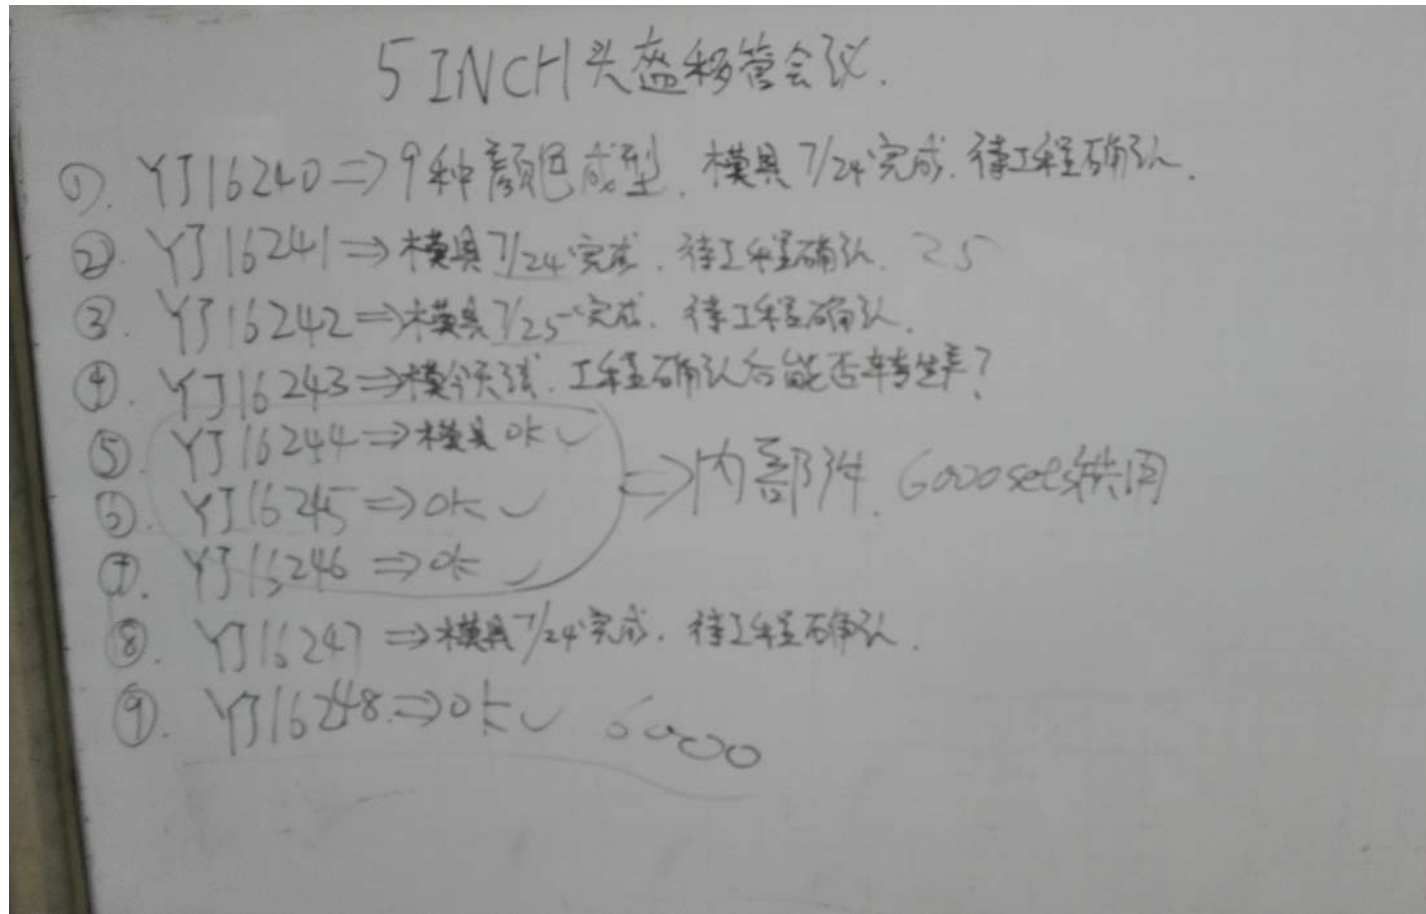 5 INCH头盔移管会议.
①. YJ16240⇒9种颜色成型. 模具7/24完成. 待工程确认.
②. YJ16241⇒模具7/24完成. 待工程确认. 25
③. YJ16242⇒模具7/25完成. 待工程确认.
④. YJ16243⇒模今天试. 工程确认后能否转生产?
⑤. YJ16244⇒模具ok✓
⑥. YJ16245⇒ok✓
⑦. YJ16246⇒ok✓
⇒内部件. 6000sets共用
⑧. YJ16247⇒模具7/24完成. 待工程确认.
⑨. YJ16248⇒ok✓ 6000